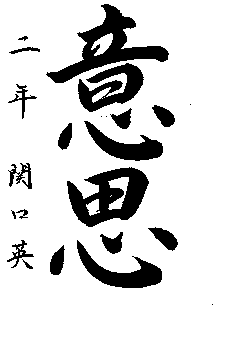 意思
二年 関口英